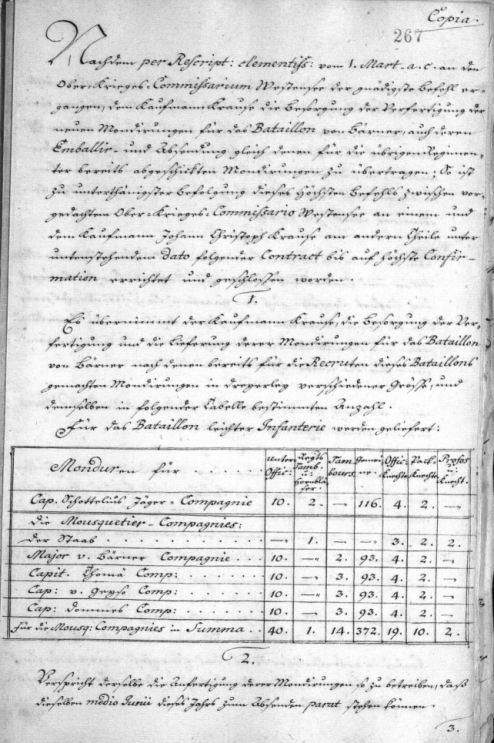 Copia.
267
Nachdem per Rescript: clementiss: vom 1. Mart. a. c. an den
Ober-Krieges-Commissarium Westensee der gnädigste Befehl er-
gangen, dem Kaufmann Krause die Besorgung der Verfertigung der
neuen Mondirungen für das Bataillon von Barner, auch deren
Emballir- und Absendung gleich denen für die übrigen Regimen-
ter bereits abgeschickten Mondirungen zu übertragen; So ist
zu unterthänigster Befolgung dieses Höchsten Befehls zwischen vor-
gedachtem Ober-Krieges-Commissario Westensee an einem und
dem Kaufmann Johann Christoph Krause am andern Theile unter
untenstehendem Dato folgender Contract bis auf höchste Confir-
mation errichtet und geschlossen worden.
1.
Es übernimmt der Kaufmann Krause, die Besorgung der Ver-
fertigung und die Lieferung derer Mondirungen für das Bataillon
von Bärner nach denen bereits für die Recruten dieses Bataillons
gemachten Mondirungen in dreyerley verschiedener Grösse, und
denenselben in folgender Tabelle bestimmten Anzahl.
Für das Bataillon leichter Infanterie werden geliefert:
Monduren für . . . . . | Unter Offic: | Regts Tamb: u: Hornblä- ser. | Tam- bours. | Gemei- ne. | Offic: Knechte | Pack- Knechte. | Profos u: Knecht.
Cap. Schottelius Jäger-Compagnie | 10. | 2. | — | 116. | 4. | 2. | —
die Mousquetier-Compagnies:
der Staab . . . . . | — | 1. | — | — | 3. | 2. | 2.
Major v. Bärner Compagnie . . . | 10. | — | 2. | 93. | 4. | 2. | —
Capit. Thomä Comp: . . . . | 10. | — | 3. | 93. | 4. | 2. | —
Cap: v. Geyso Comp: . . . . | 10. | — | 3. | 93. | 4. | 2. | —
Cap: Dommes Comp: . . . . | 10. | — | 3. | 93. | 4. | 2. | —
für die Mousq: Compagnies in Summa . . | 40. | 1. | 14. | 372. | 19. | 10. | 2.
2.
Verspricht derselbe die Anfertigung derer Mondirungen so zu betreiben, daß
dieselben medio Junii dieses Jahrs zum Absenden parat stehen können.
3.